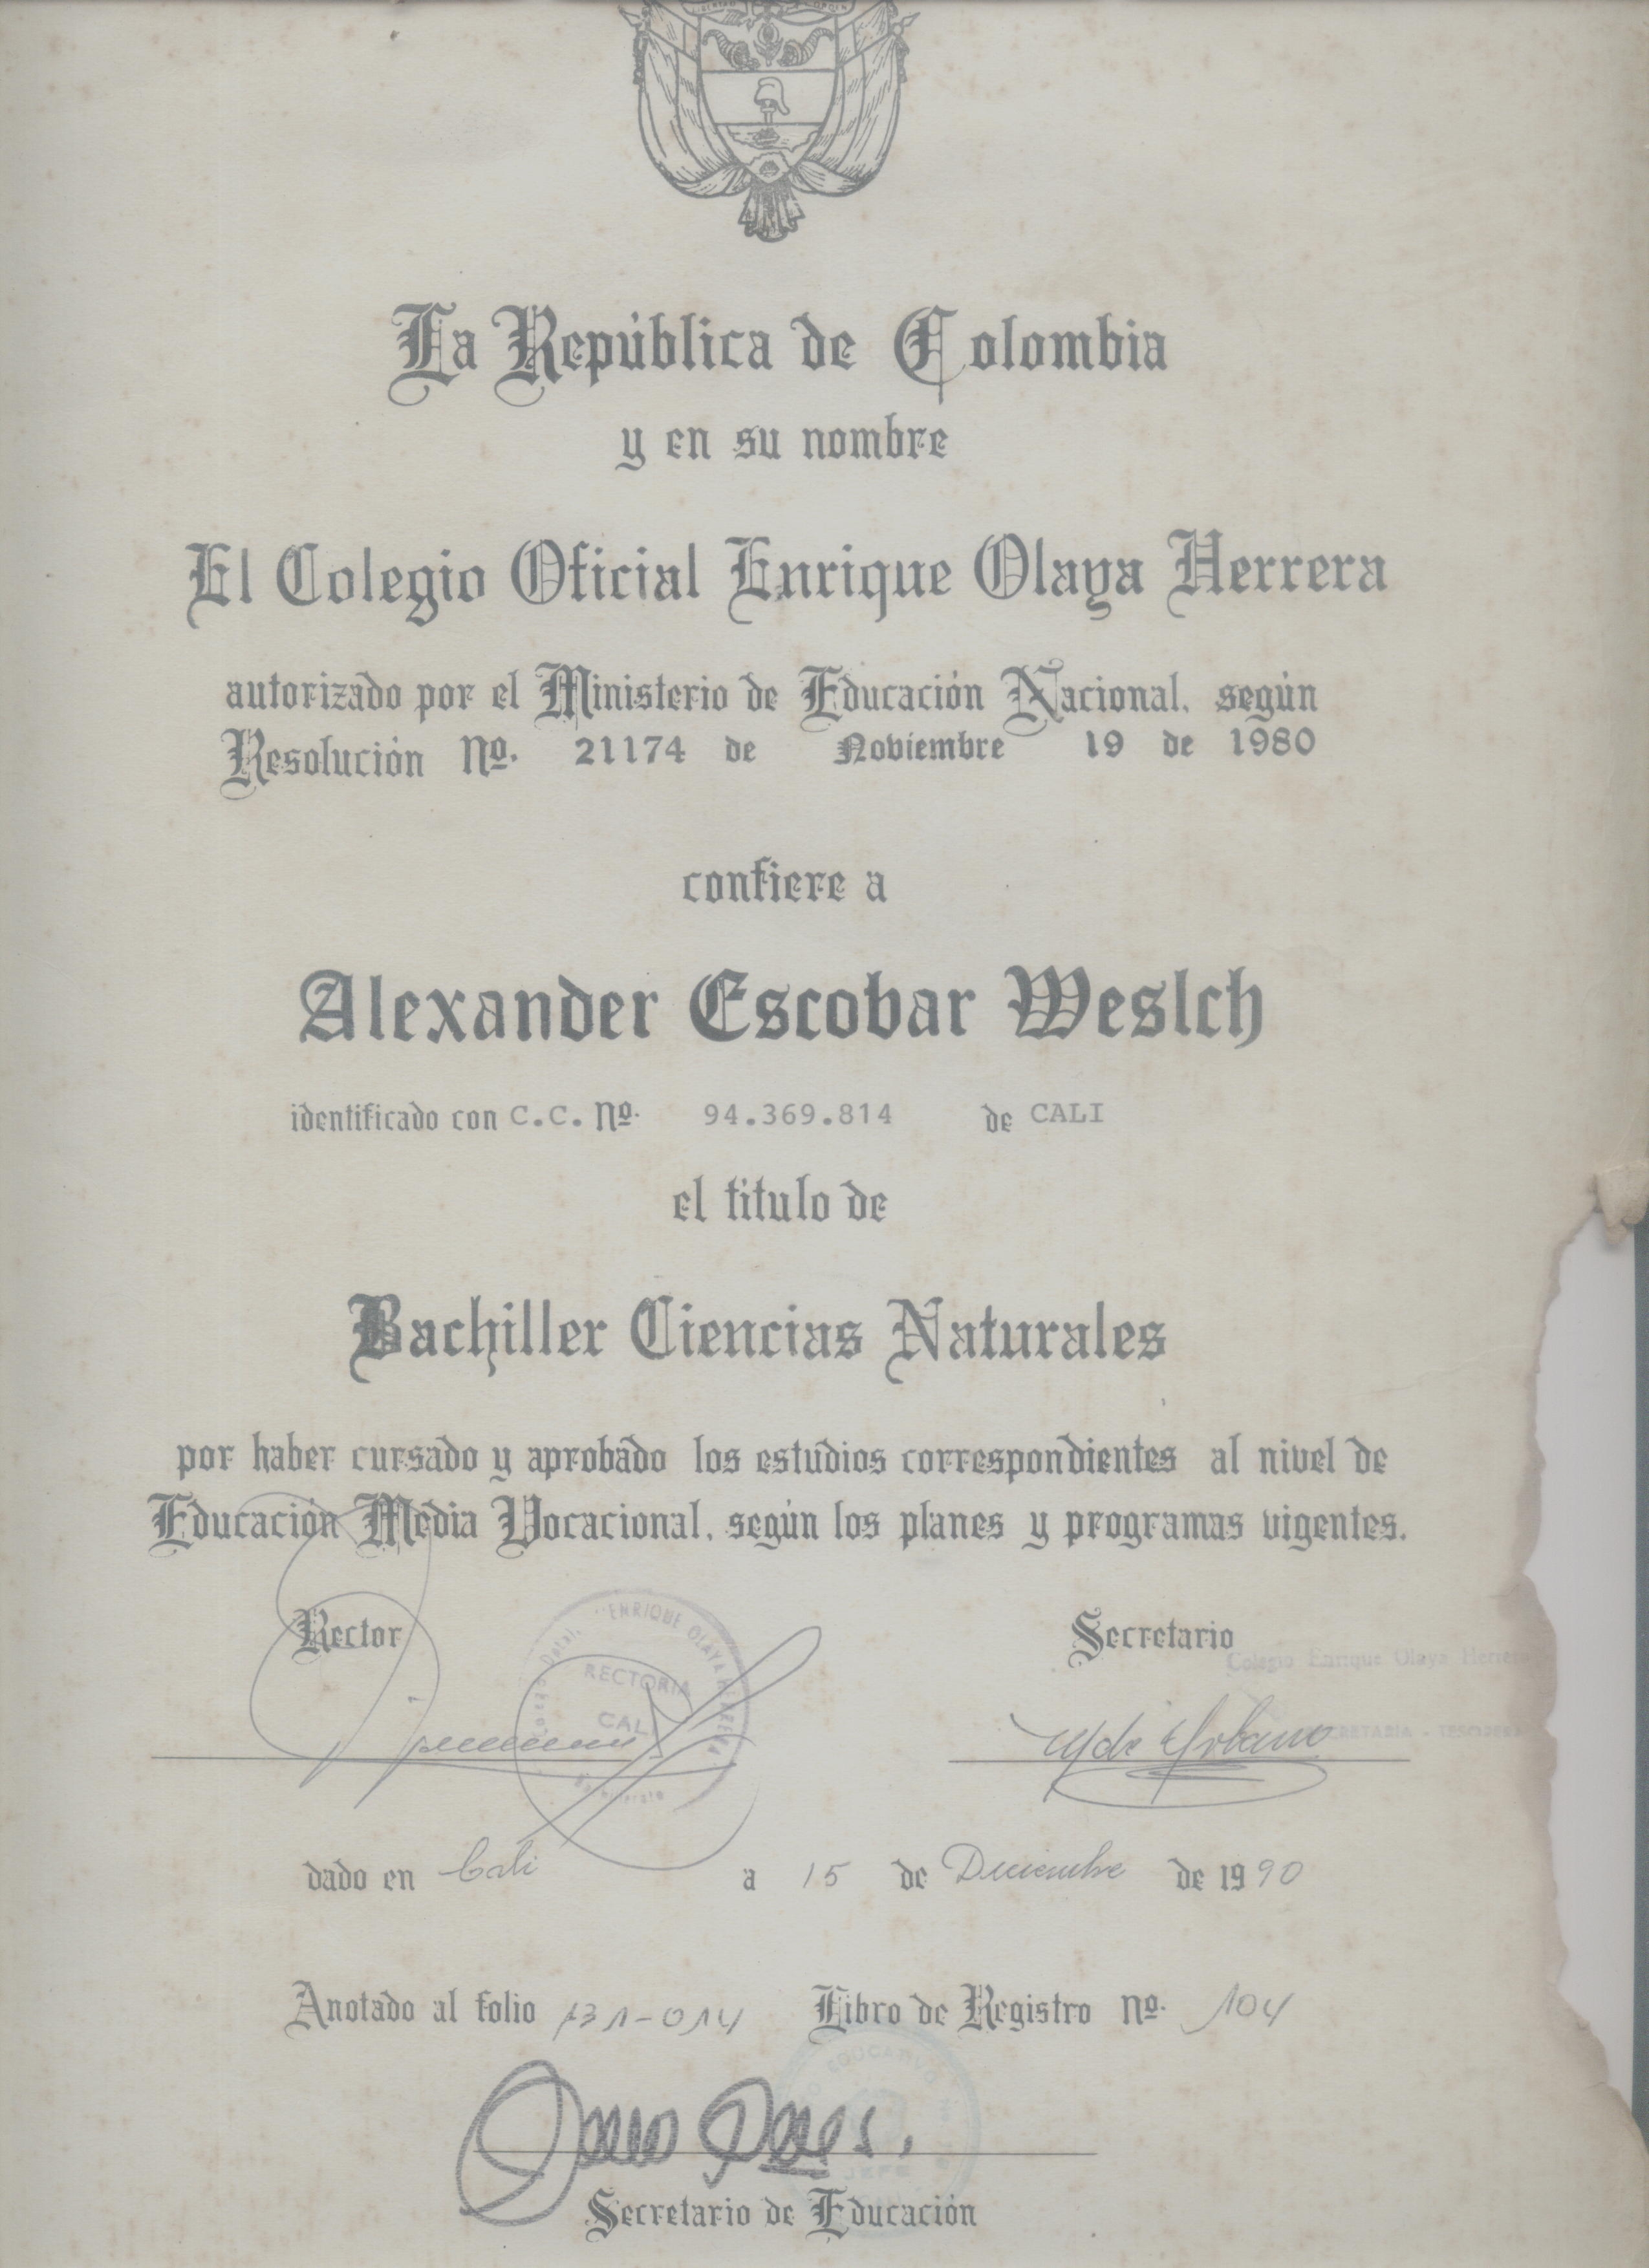 LIBERTAD Y ORDEN
La República de Colombia
y en su nombre
El Colegio Oficial Enrique Olaya Herrera
autorizado por el Ministerio de Educación Nacional, según
Resolución Nº. 21174 de Noviembre 19 de 1980
confiere a
Alexander Escobar Weslch
identificado con C.C. Nº. 94.369.814 de CALI
el titulo de
Bachiller Ciencias Naturales
por haber cursado y aprobado los estudios correspondientes al nivel de
Educación Media Vocacional, según los planes y programas vigentes.
Rector
Secretario
ENRIQUE OLAYA HERRERA
RECTORIA
CALI
Colegio Enrique Olaya Herrera
SECRETARIA - TESORERIA
dado en Cali a 15 de Diciembre de 1990
Anotado al folio 731-014 Libro de Registro Nº. 104
EDUCATIVO
JEFE
Secretario de Educación